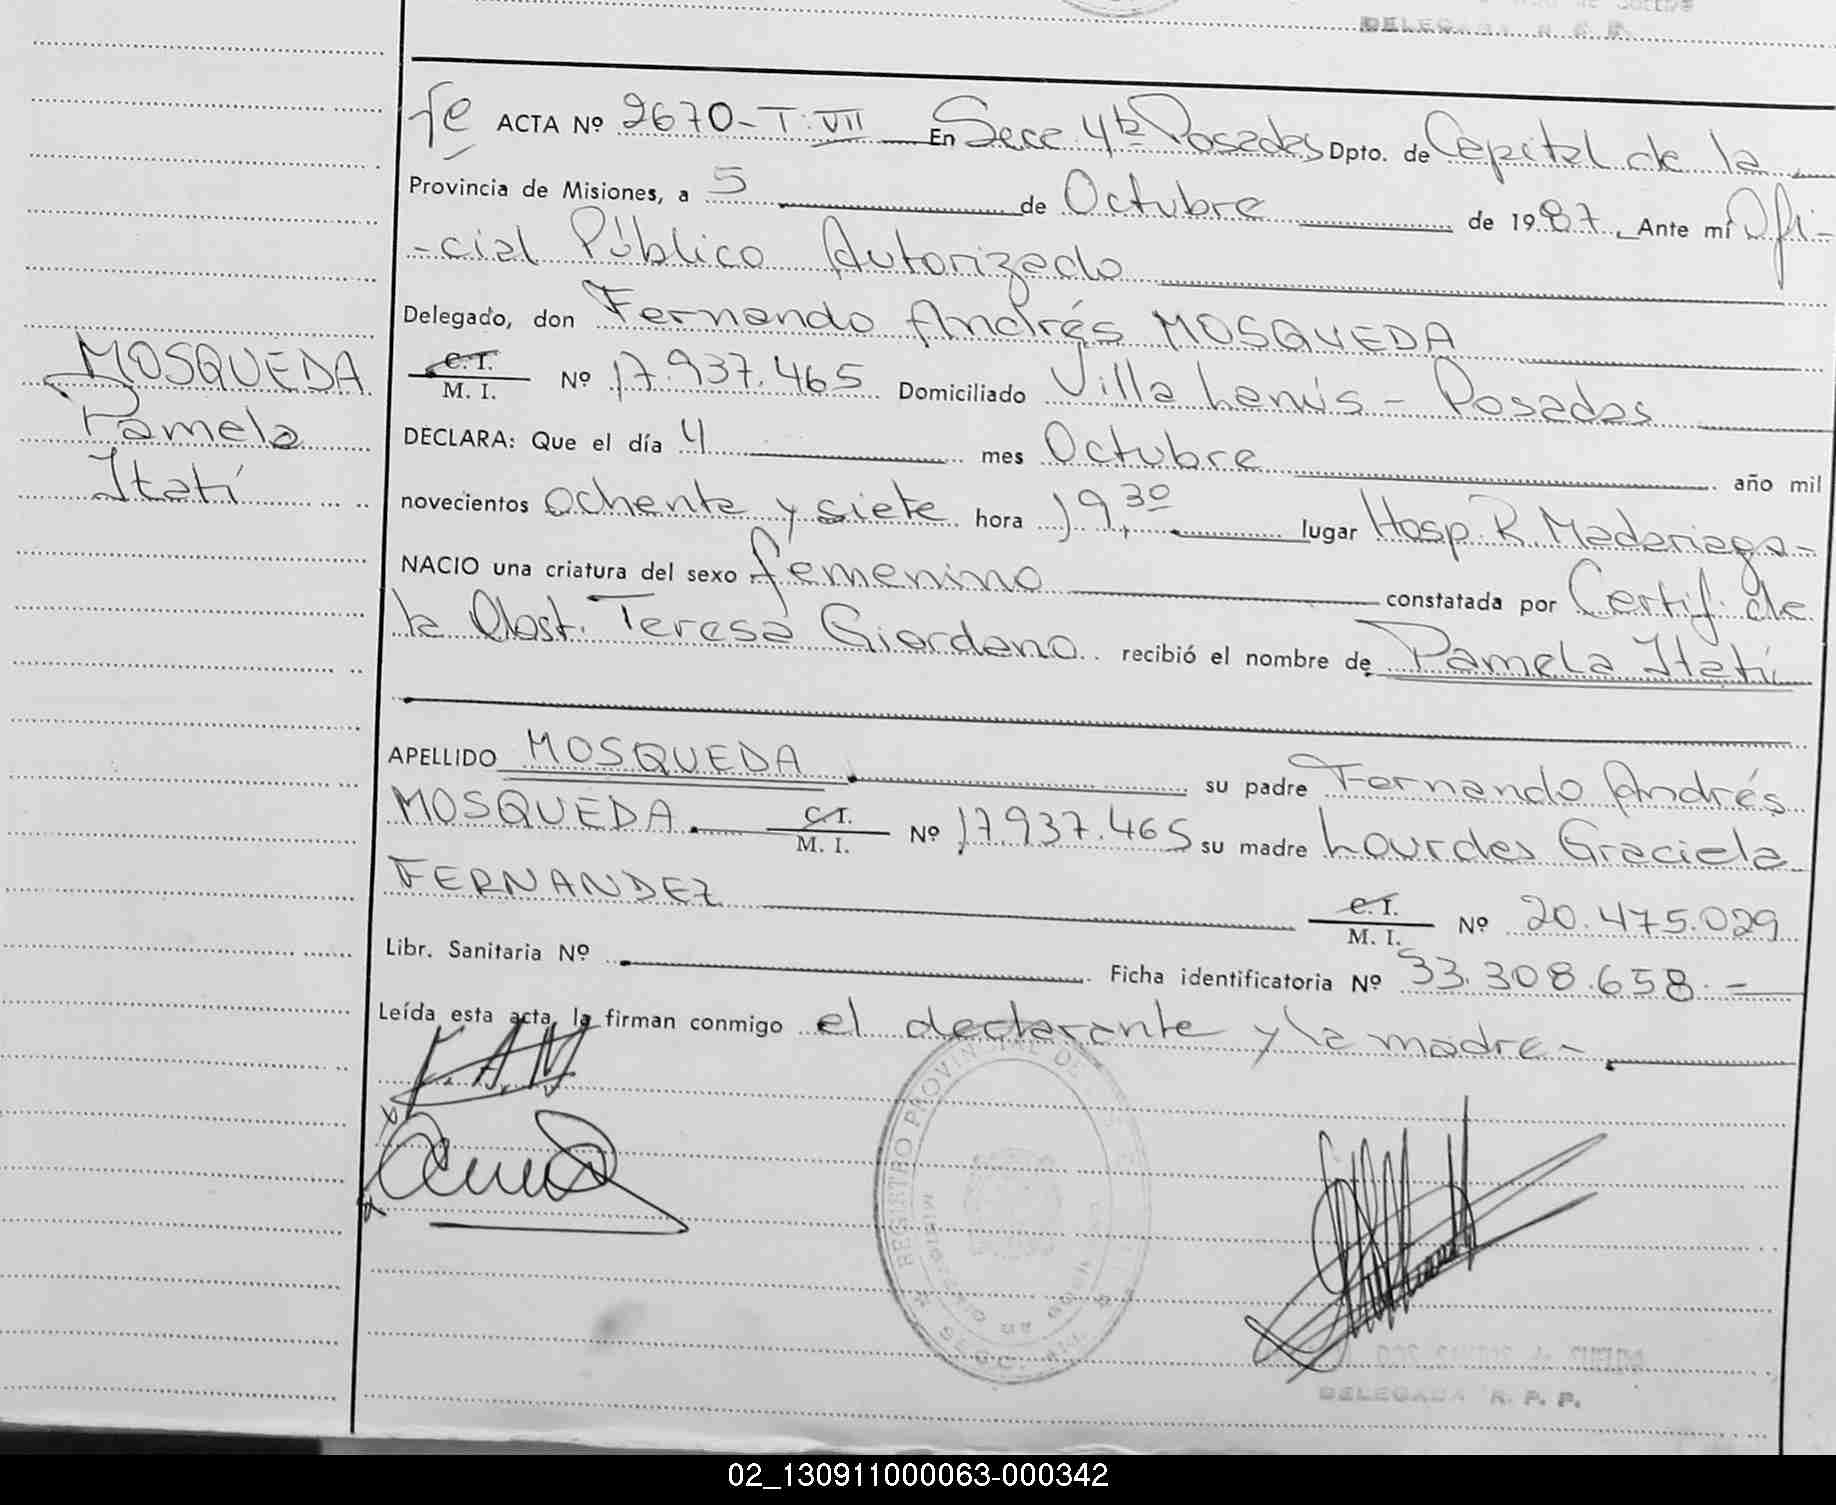 DELEGADA R. P. P.
fe ACTA Nº 2670-T.VII En Secc 4ta Posadas Dpto. de Capital de la
Provincia de Misiones, a 5 de Octubre de 1987. Ante mí Ofi-
-cial Público Autorizado
Delegado, don Fernando Andrés MOSQUEDA
MOSQUEDA
C.I.
M. I. Nº 17.937.465 Domiciliado Villa Lanús - Posadas
Pamela
DECLARA: Que el día 4 mes Octubre año mil
Itatí
novecientos ochenta y siete hora 19,30 lugar Hosp. R. Madariaga-
NACIO una criatura del sexo femenino constatada por Certif. de
la Obst. Teresa Giordano recibió el nombre de Pamela Itatí
APELLIDO MOSQUEDA su padre Fernando Andrés
MOSQUEDA. C.I. M. I. Nº 17.937.465 su madre Lourdes Graciela
FERNANDEZ C.I. M. I. Nº 20.475.029
Libr. Sanitaria Nº Ficha identificatoria Nº 33.308.658.-
Leída esta acta, la firman conmigo el declarante y la madre-
F.A.M
REGISTRO PROVINCIAL DE
SECC.
DELEGADA R. P. P.
02_130911000063-000342